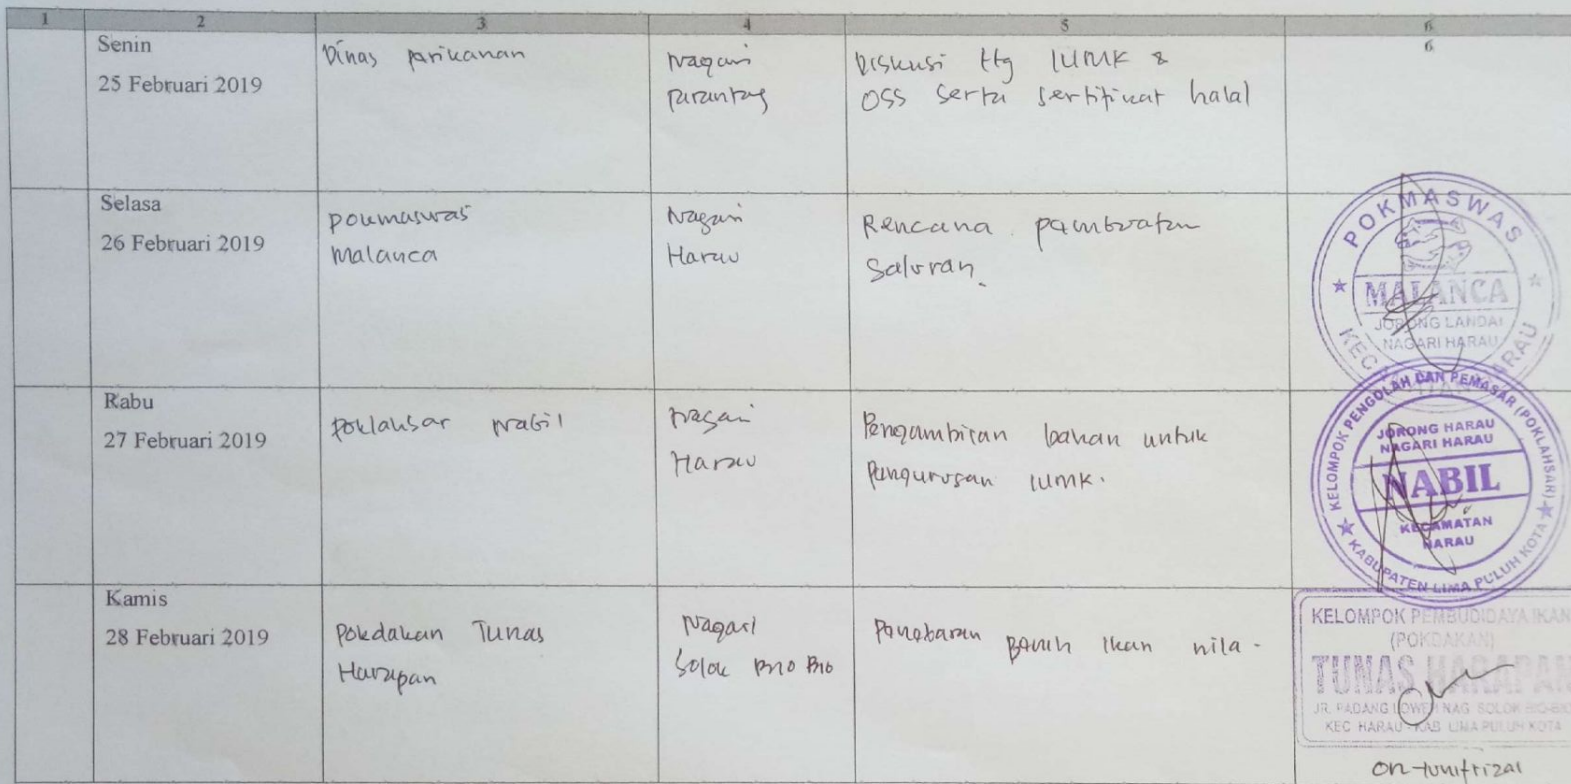 1 2 3 4 5 6
Senin
25 Februari 2019
Dinas parikanan
Nagari
Diskusi ttg IUMK &
OSS serta sertifikat halal
6
Selasa
26 Februari 2019
pokmaswas
Malanca
Nagari
Harau
Rencana pambuatan
Saluran.
POKMASWAS
MALANCA
JORONG LANDAI
NAGARI HARAU
Rabu
27 Februari 2019
poklahsar Nabil
Nagari
Harau
Pengambilan bahan untuk
pangurusan IUMK.
KELOMPOK PENGOLAH DAN PEMASAR (POKLAHSAR)
JORONG HARAU
NAGARI HARAU
NABIL
KECAMATAN
HARAU
KABUPATEN LIMA PULUH KOTA
Kamis
28 Februari 2019
Pokdakan Tunas
Harapan
Nagari
Solok Bio Bio
Panebaran Banih Ikan nila.
KELOMPOK PEMBUDIDAYA IKAN
(POKDAKAN)
TUNAS HARAPAN
JR. PADANG LOWEH NAG SOLOK BIO-BIO
KEC HARAU - KAB LIMA PULUH KOTA